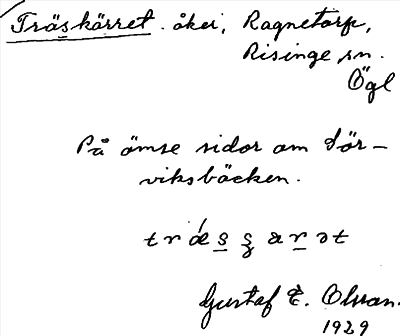 Träskärret. åker, Ragnetorp,
Risinge sn.
Ögl
På ömse sidor om Dör-
viksbäcken.
Gustaf E. Olsson.
1929